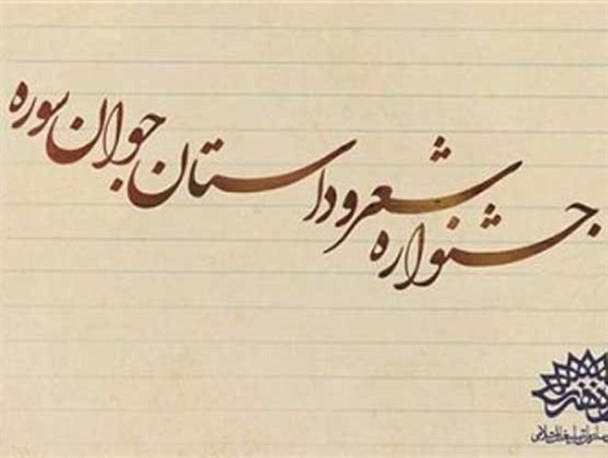 جشنواره شعر و داستان جوان سوره